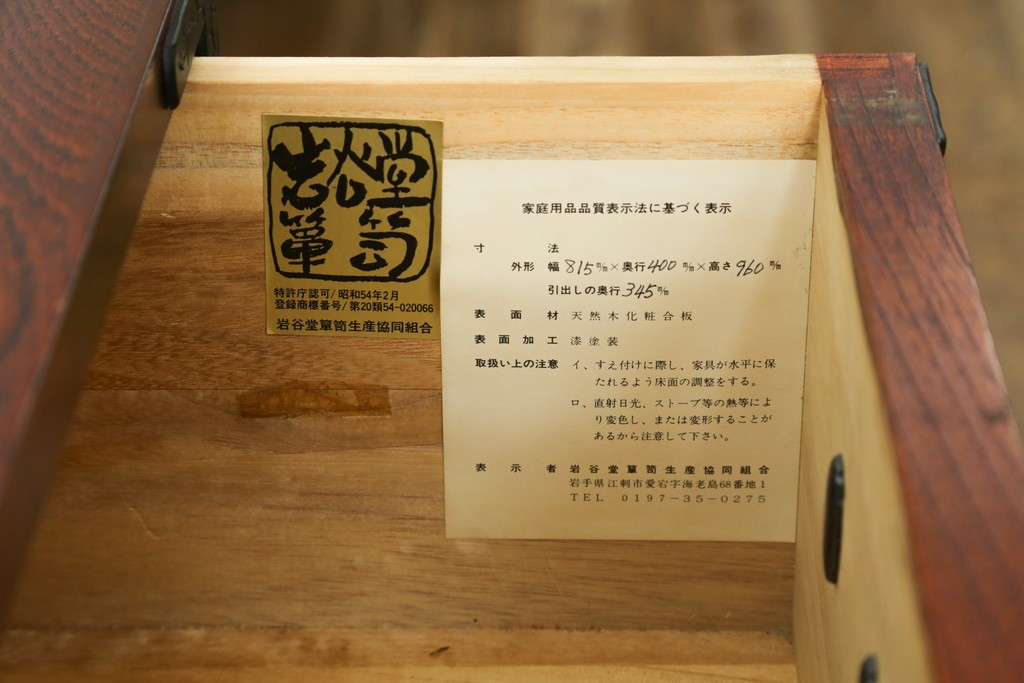 岩谷堂
簞笥
特許庁認可/昭和54年2月
登録商標番号/第20類54-020066
岩谷堂簞笥生産協同組合
家庭用品品質表示法に基づく表示
寸法
外形 幅815m/m×奥行400m/m×高さ960m/m
引出しの奥行345m/m
表面材 天然木化粧合板
表面加工 漆塗装
取扱い上の注意 イ、すえ付けに際し、家具が水平に保
たれるよう床面の調整をする。
ロ、直射日光、ストーブ等の熱等によ
り変色し、または変形することが
あるから注意して下さい。
表示者 岩谷堂簞笥生産協同組合
岩手県江刺市愛宕字海老島68番地1
TEL 0197-35-0275